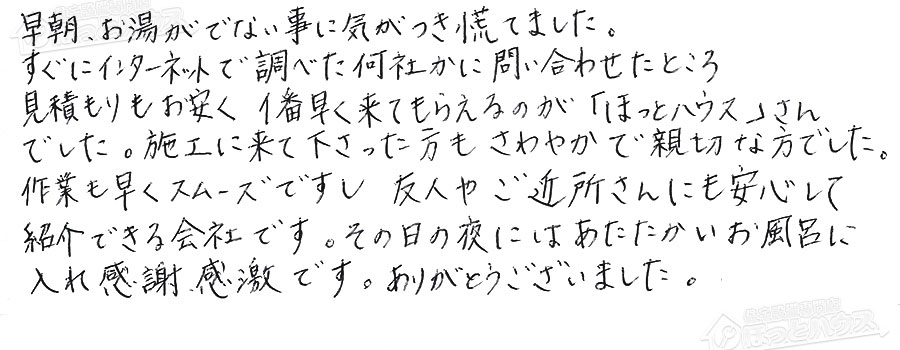 早朝、お湯がでない事に気がつき慌てました。
すぐにインターネットで調べた何社かに問い合わせたところ
見積もりもお安く 1番早く来てもらえるのが「ほっとハウス」さん
でした。施工に来て下さった方も さわやかで親切な方でした。
作業も早くスムーズですし 友人や ご近所さんにも安心して
紹介できる会社です。その日の夜にはあたたかいお風呂に
入れ感謝感激です。ありがとうございました。
ほっとハウス